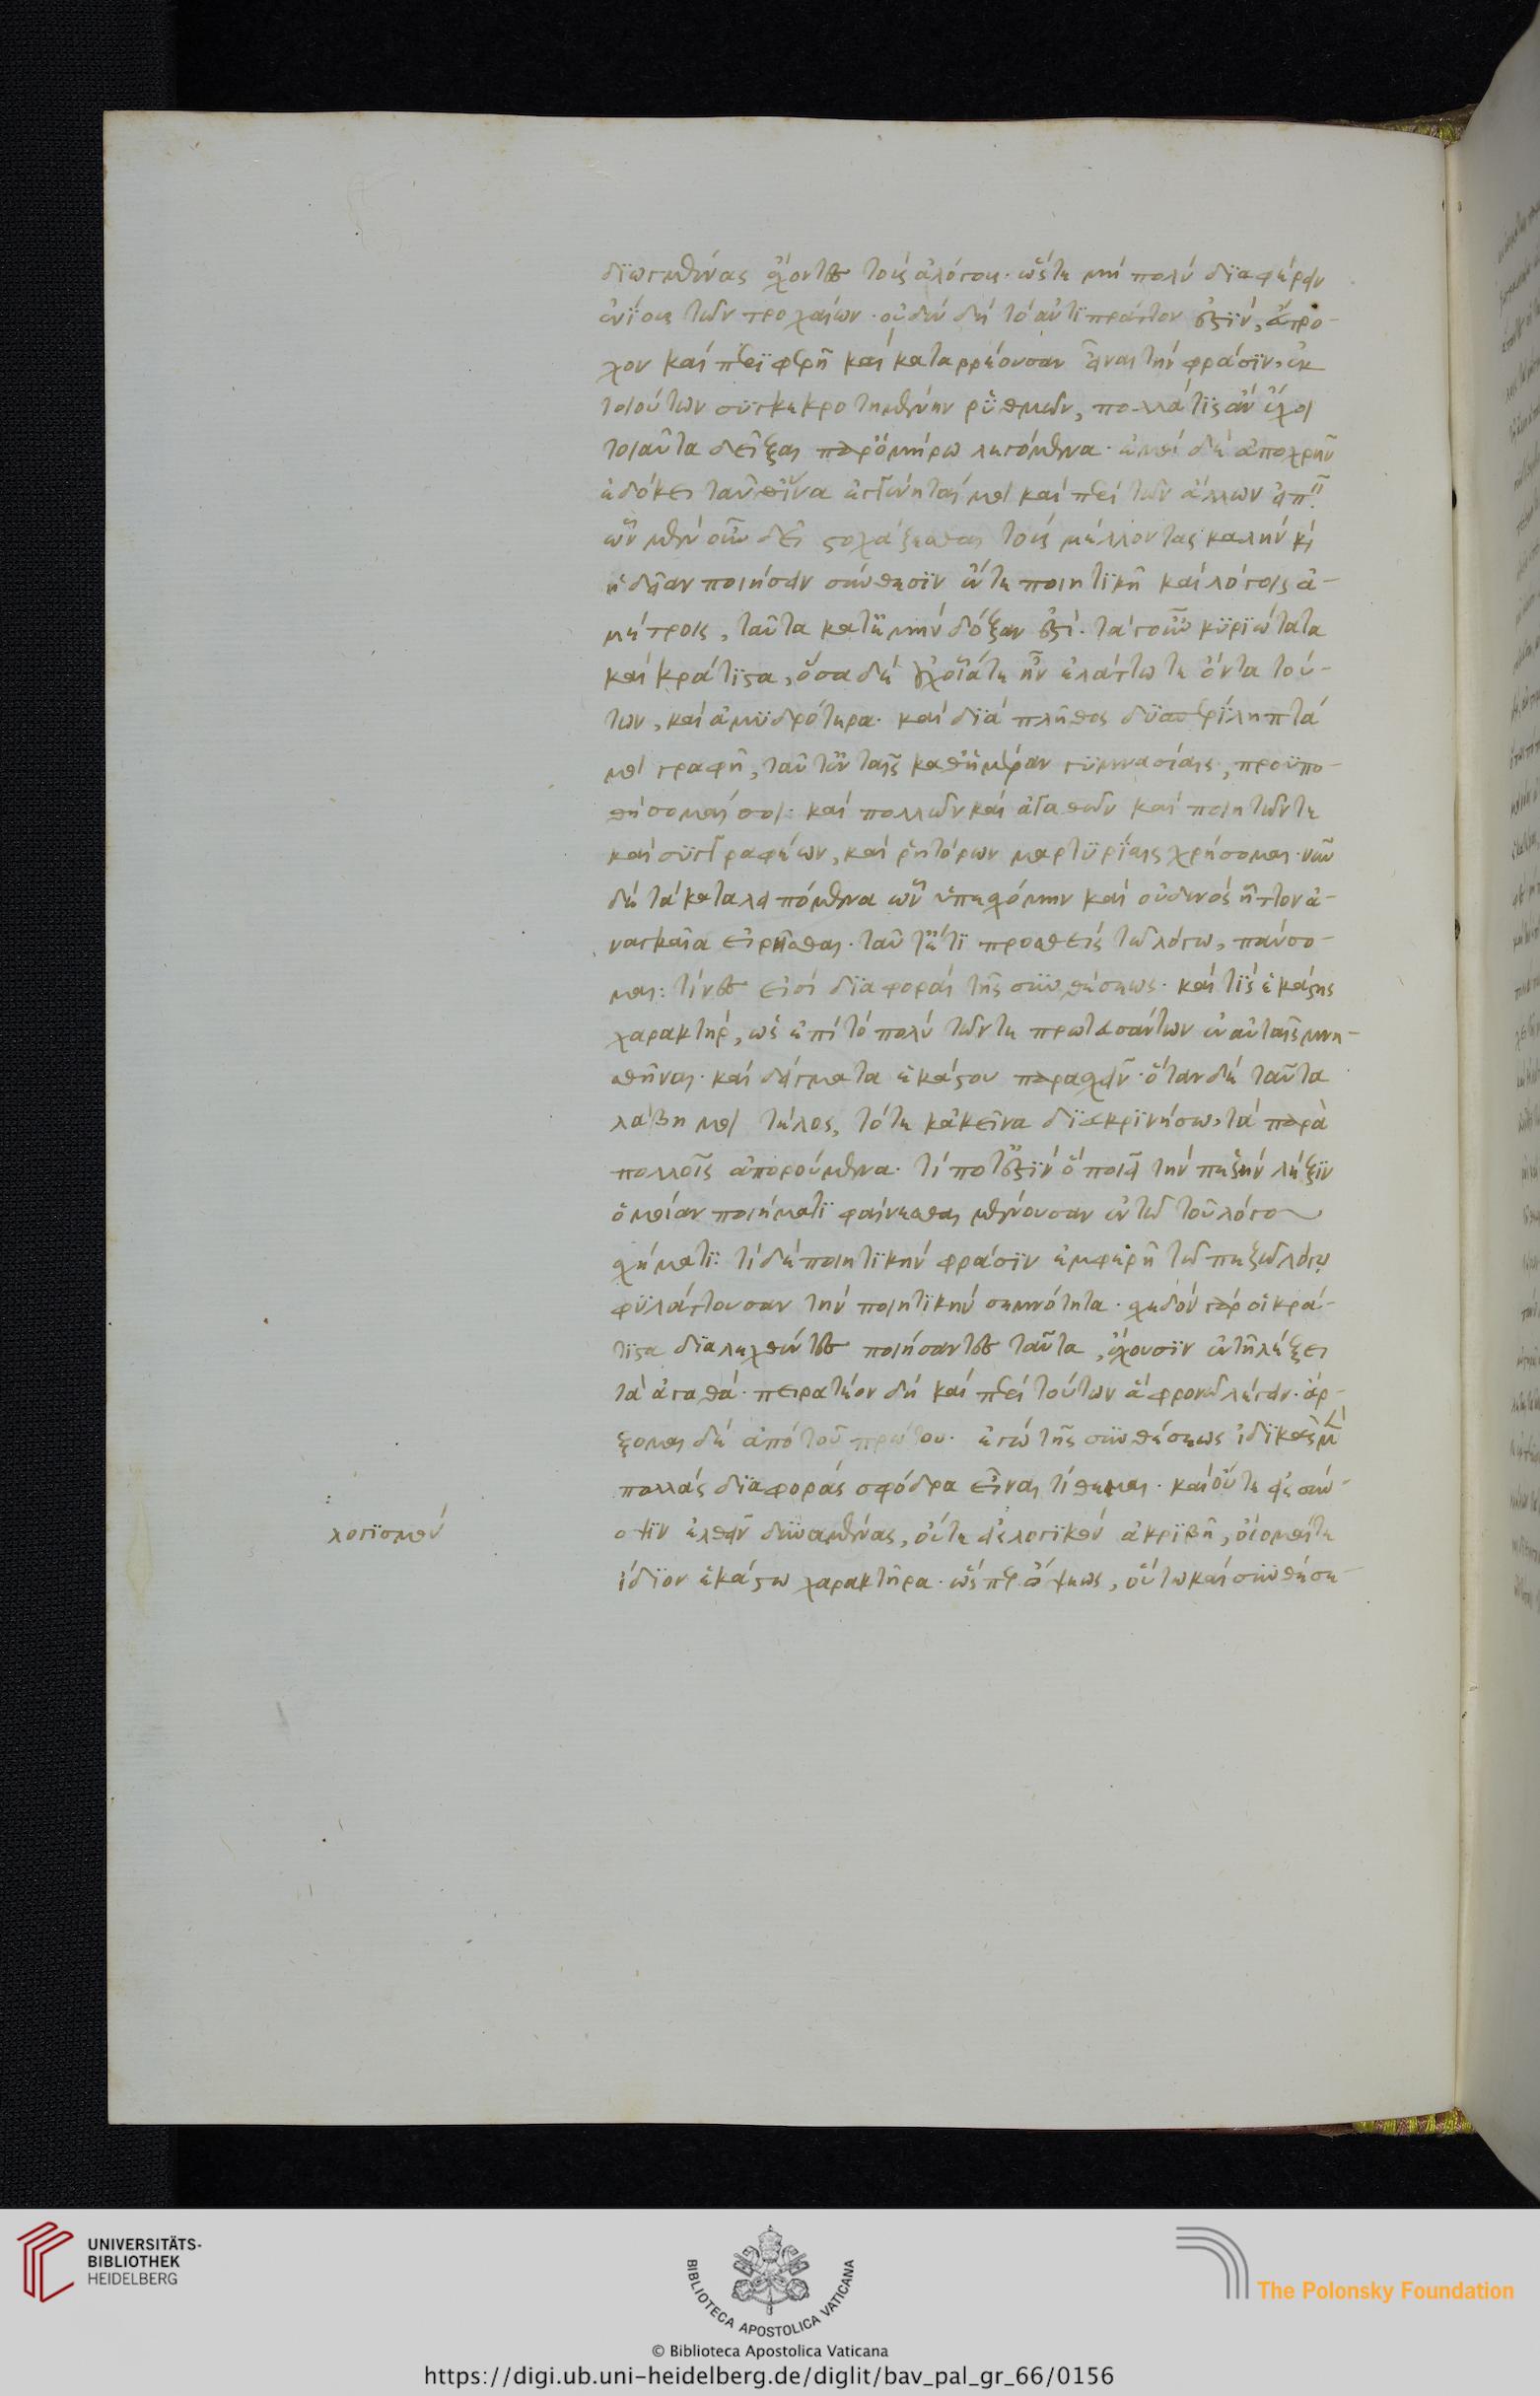 διωγμένας ἔχοντες τοὺς ἀλόγους· ὥστε μὴ πολὺ διαφέρειν
ἐνίους τῶν τροχαίων· οὐδὲν δὴ τὸ ἀντιπράττον ἐστὶν, εὔτρο-
χον καὶ περιφερῆ καὶ καταρρέουσαν εἶναι τὴν φράσιν, ἐκ
τοιούτων συγκεκροτημένην ῥυθμῶν, πολλά τις ἂν ἔχοι
τοιαῦτα δεῖξαι παρ' ὁμήρω λεγόμενα· ἐμοὶ δὲ ἀποχρῆν
ἐδόκει ταῦθ' ἵνα ἐγγένηταί μοι καὶ περὶ τῶν ἄλλων εἰπεῖν.
ὧν μὲν οὖν δεῖ στοχάζεσθαι τοὺς μέλλοντας καλὴν καὶ
ἡδεῖαν ποιήσειν σύνθεσιν ἔν τε ποιητικῆ καὶ λόγοις ἀ-
μέτροις, ταῦτα κατ' ἐμὴν δόξαν ἐστὶ· τὰ γοῦν κυριώτατα
καὶ κράτιστα, ὅσα δὲ οὐχ οἷά τε ἦν ἐλάττω τε ὄντα τού-
των, καὶ ἀμυδρότερα· καὶ διὰ πλῆθος δυσπερίληπτα
μιᾷ γραφῆ, ταῦτ' ἐν ταῖς καθ' ἡμέραν γυμνασίαις, προϋπο-
θήσομαί σοι· καὶ πολλῶν καὶ ἀγαθῶν καὶ ποιητῶν τε
καὶ συγγραφέων, καὶ ῥητόρων μαρτυρίαις χρήσομαι· νῦν
δὲ τὰ καταλειπόμενα ὧν ὑπεσχόμην καὶ οὐδενὸς ἧττον ἀ-
ναγκαῖα εἰρῆσθαι· ταῦτ' ἔτι προσθεὶς τῶ λόγω, παύσο-
μαι: τίνες εἰσὶ διαφοραὶ τῆς συνθέσεως· καὶ τίς ἑκάστης
χαρακτὴρ, ὡς ἐπὶ τὸ πολὺ τῶν τε πρωτευσάντων ἐν αὐταῖς μνη-
σθῆναι· καὶ δείγματα ἑκάστου παρασχεῖν· ὅταν δὲ ταῦτα
λάβη μοι τέλος, τότε κἀκεῖνα διακρινήσω, τὰ παρὰ
πολλοῖς ἀπορούμενα· τί ποτ' ἐστὶν ὃ ποιεῖ τὴν πεζὴν λέξιν
ὁμοίαν ποιήματι φαίνεσθαι μένουσαν ἐν τῶ τοῦ λόγου
σχήματι: τί δὲ ποιητικὴν φράσιν ἐμφερῆ τῶ πεζῶ λόγω
φυλάττουσαν τὴν ποιητικὴν σεμνότητα· σχεδὸν γὰρ οἱ κρά-
τιστα διαλεχθέντες ποιήσαντες ταῦτα, ἔχουσιν ἐν τῆ λέξει
τὰ ἀγαθά· πειρατέον δὴ καὶ περὶ τούτων ἃ φρονῶ λέγειν· ἄρ-
ξομαι δὲ ἀπὸ τοῦ πρώτου· ἐγὼ τῆς συνθέσεως ἰδικὰς μὲν
πολλὰς διαφορὰς σφόδρα εἶναι τίθεμαι· καὶ οὔτε εἰς σύν-
οψιν ἐλθεῖν δυναμένας, οὔτε εἰς λογικὸν ἀκριβῆ, οἴομαί τε
ἴδιον ἑκάστω χαρακτῆρα· ὥσπερ ὄψεως, οὕτω καὶ συνθέσε-
λογισμὸν
UNIVERSITÄTS-
BIBLIOTHEK
HEIDELBERG
BIBLIOTECA APOSTOLICA VATICANA
The Polonsky Foundation
© Biblioteca Apostolica Vaticana
https://digi.ub.uni-heidelberg.de/diglit/bav_pal_gr_66/0156